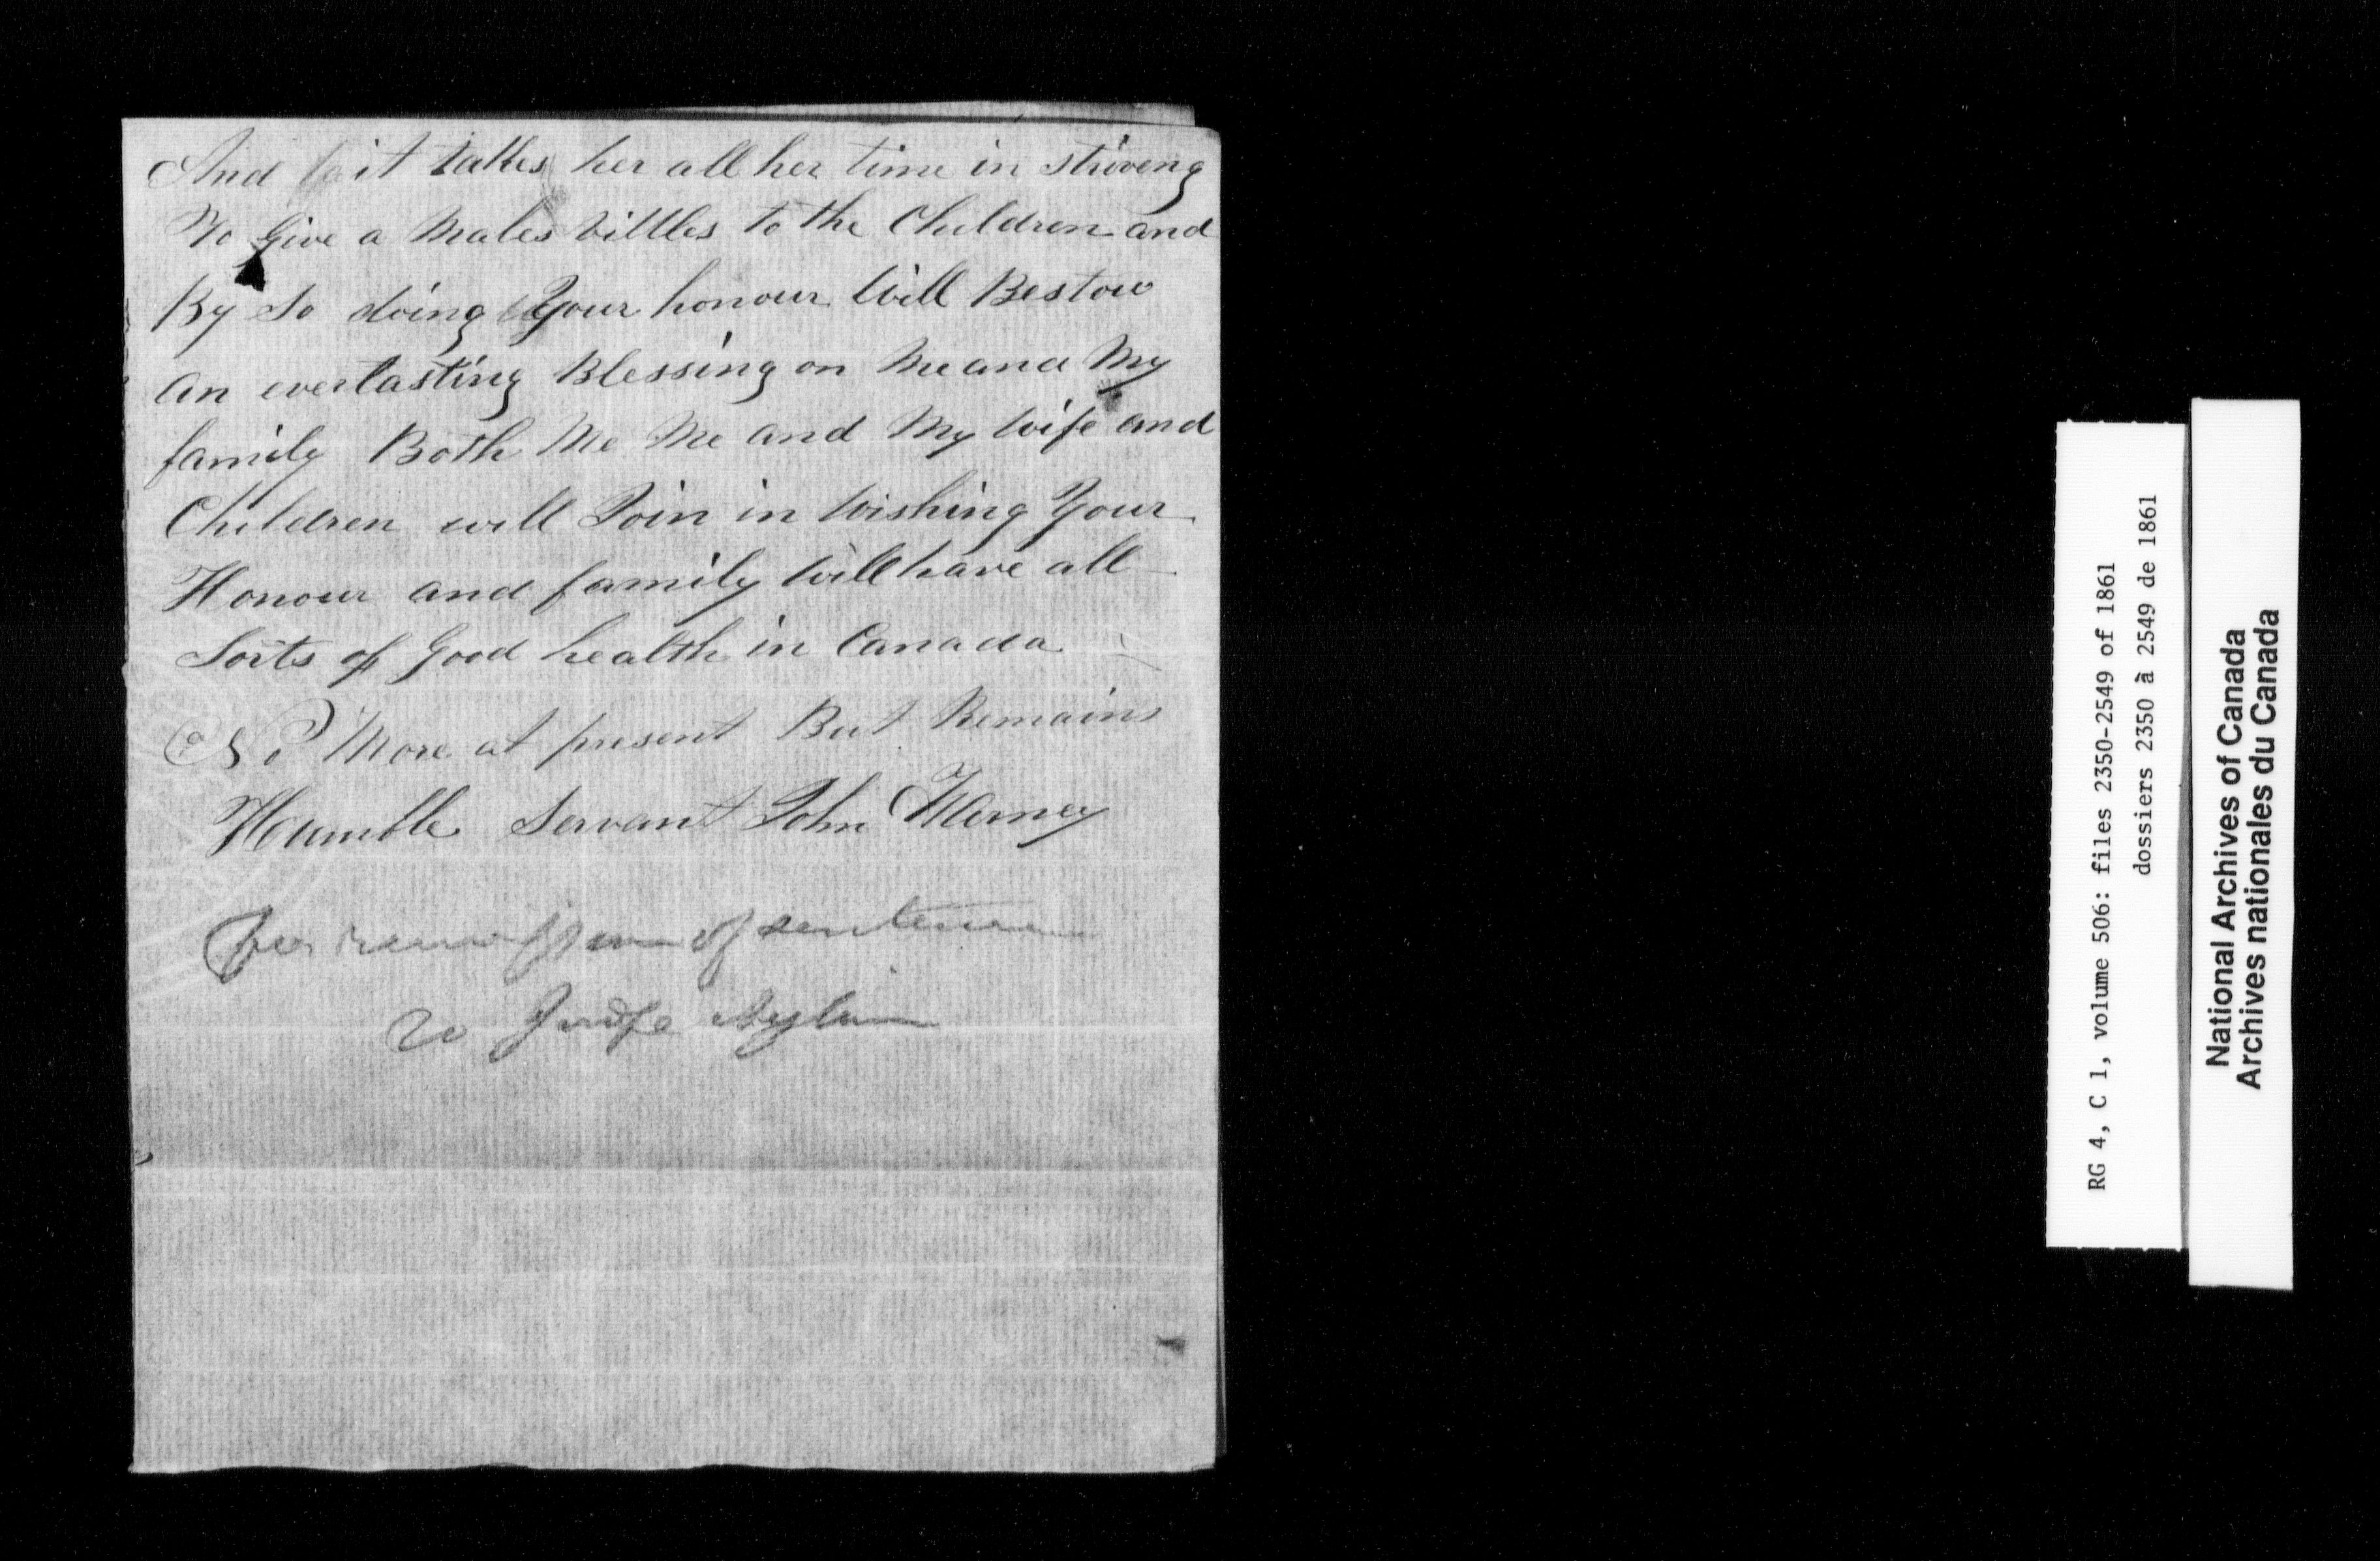 And it takes her all her time in striveng
To give a Males vittles to the Children and
By So doing Your honour Will Bestow
an everlasting Blessing on Me and My
family Both Me Me and My wife and
Children will Join in wishing Your
Honour and family will have all
Sorts of Good health in Canada
No More at present But Remains
Humble Servant John Harney
for remission of sentence
To Judge Aylwin
RG 4, C 1, volume 506: files 2350-2549 of 1861
dossiers 2350 à 2549 de 1861
National Archives of Canada
Archives nationales du Canada